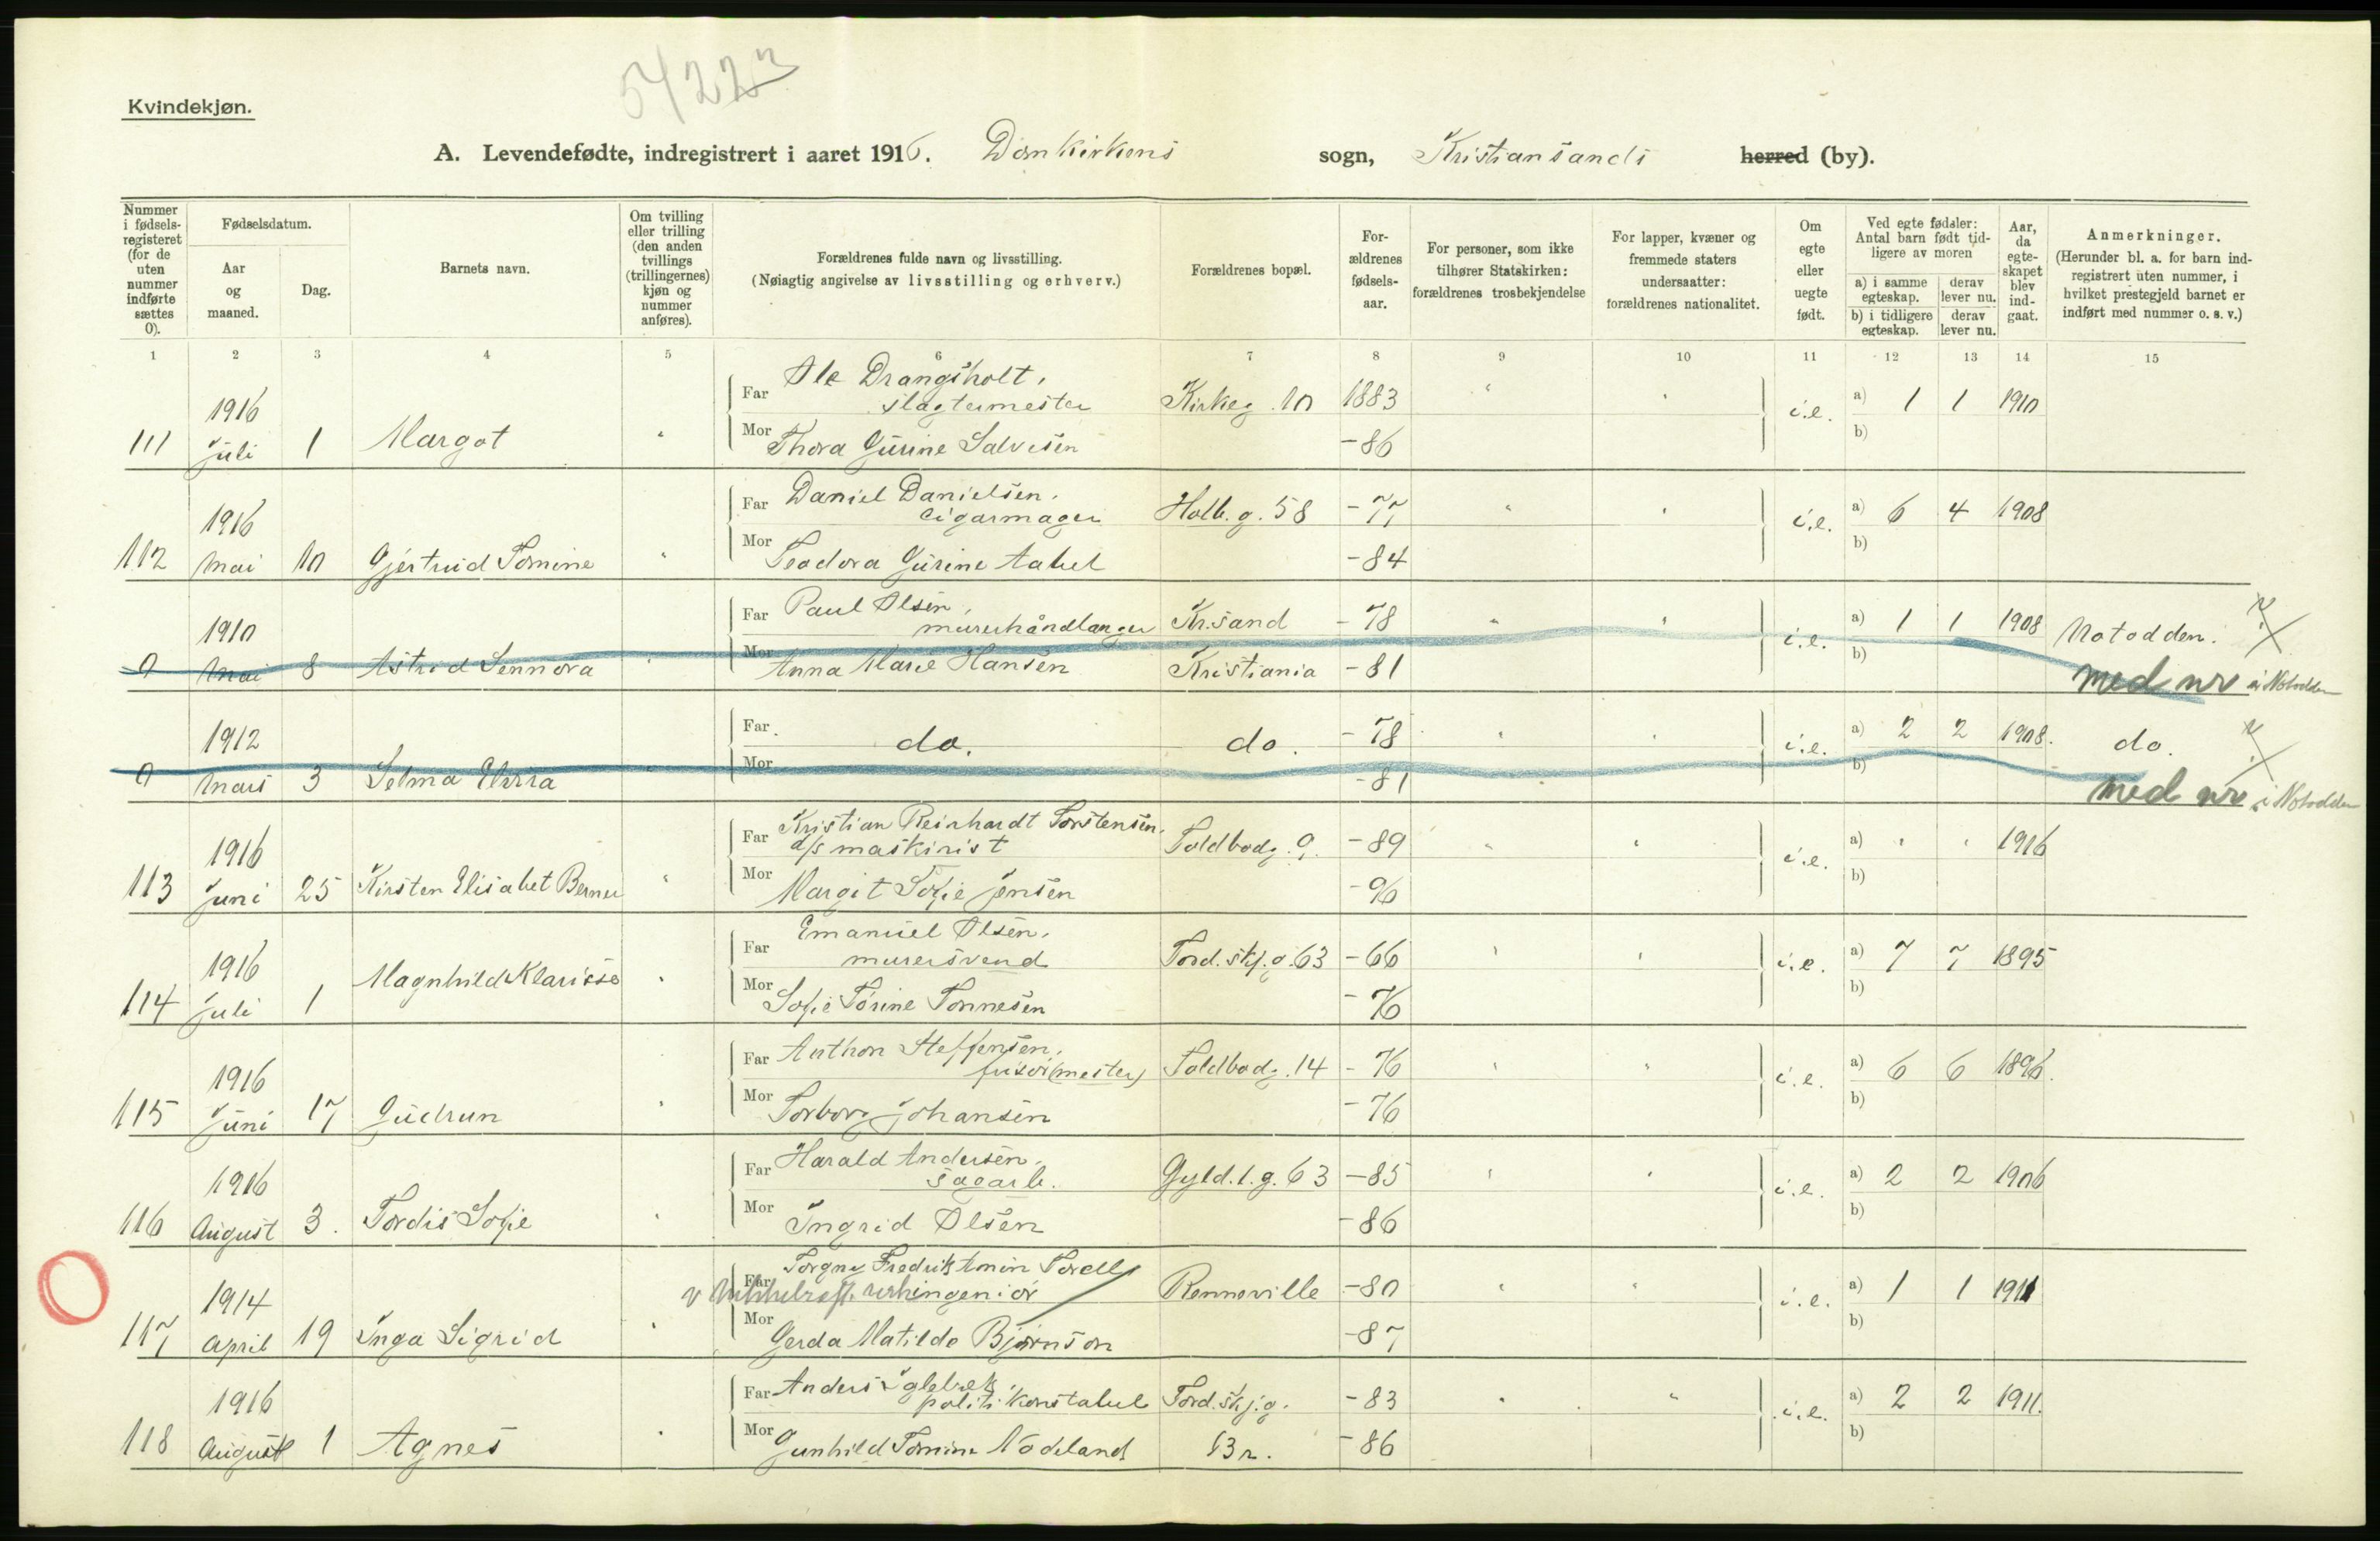 5422
Kvindekjøn.
A. Levendefødte, indregistrert i aaret 1916. Domkirkens sogn, Kristiansands herred (by).
Nummer i fødsels-registeret (for de uten nummer indførte sættes 0).
Fødselsdatum.
Aar og maaned.
Dag.
Barnets navn.
Om tvilling eller trilling (den anden tvillings (trillingernes) kjøn og nummer anføres).
Forældrenes fulde navn og livsstilling.
(Nøiagtig angivelse av livsstilling og erhverv.)
Forældrenes bopæl.
For-ældrenes fødsels-aar.
For personer, som ikke tilhører Statskirken: forældrenes trosbekjendelse
For lapper, kvæner og fremmede staters undersaatter: forældrenes nationalitet.
Om egte eller uegte født.
Ved egte fødsler: Antal barn født tid-ligere av moren
a) i samme egteskap.
derav lever nu.
b) i tidligere egteskap.
derav lever nu.
Aar, da egte-skapet blev ind-gaat.
Anmerkninger.
(Herunder bl. a. for barn ind-registrert uten nummer, i hvilket prestegjeld barnet er indført med nummer o. s. v.)
1 2 3 4 5 6 7 8 9 10 11 12 13 14 15
Far Ole Drangsholt,
1916 slagtermester Kirkeg. 10 1883 " " i.e. a) 1 1 1910
111 Juli 1 Margot " Mor Thora Gurine Salvesen -86 b)
Far Daniel Danielsen,
1916 cigarmager Holb.g. 58 -77 " " i.e. a) 6 4 1908
112 Mai 10 Gjertrud Tomine " Mor Teodora Gurine Aabel -84 b)
Far Paul Olsen,
1910 murerhåndlanger Kr.sand -78 " " i.e. a) 1 1 1908 Notodden.
0 Mai 8 Astrid Lennora " Mor Anna Marie Hansen Kristiania -81 b) med nr i Notodden
1912 Far do. do. -78 " " i.e. a) 2 2 1908. do.
0 Mars 3 Selma " Mor -81 b) med nr i Notodden
Far Kristian Reinhardt Torstensen,
1916 d/s maskinist Toldbodg. 9. -89 " " i.e. a) " " 1916
113 Juni 25 Kirsten Elisabet Berner " Mor Margit Sofie Jensen -96 b)
Far Emanuel Olsen,
1916 murersvend Tord.skj.g. 63 -66 " " i.e. a) 7 7 1895
114 Juli 1 Magnhild Klarisse " Mor Sofie Torine Tønnesen -76 b)
Far Anthon Steffensen,
1916 frisør(mester) Toldbodg. 14 -76 " " i.e. a) 6 6 1896.
115 Juni 17 Gudrun " Mor Torborg Johansen -76 b)
Far Harald Andersen,
1916 sagarb. Gyld.l.g. 63 -85 " " i.e. a) 2 2 1906
116 August 3. Tordis Sofie " Mor Ingrid Olsen -86 b)
Far Torgny Fredrik Armin Torell
1914 ingeniør Renneville -80 " " i.e. a) 1 1 1911
117 April 19 Inga Sigrid " Mor Gerda Matilde Bjørnson -87 b)
Far Anders Iglebæk,
1916 politikonstabel Tord.skj.g. -83 " " i.e. a) 2 2 1911.
118 August 1 Agnes " Mor Gunhild Tomine Nodeland -86 b)